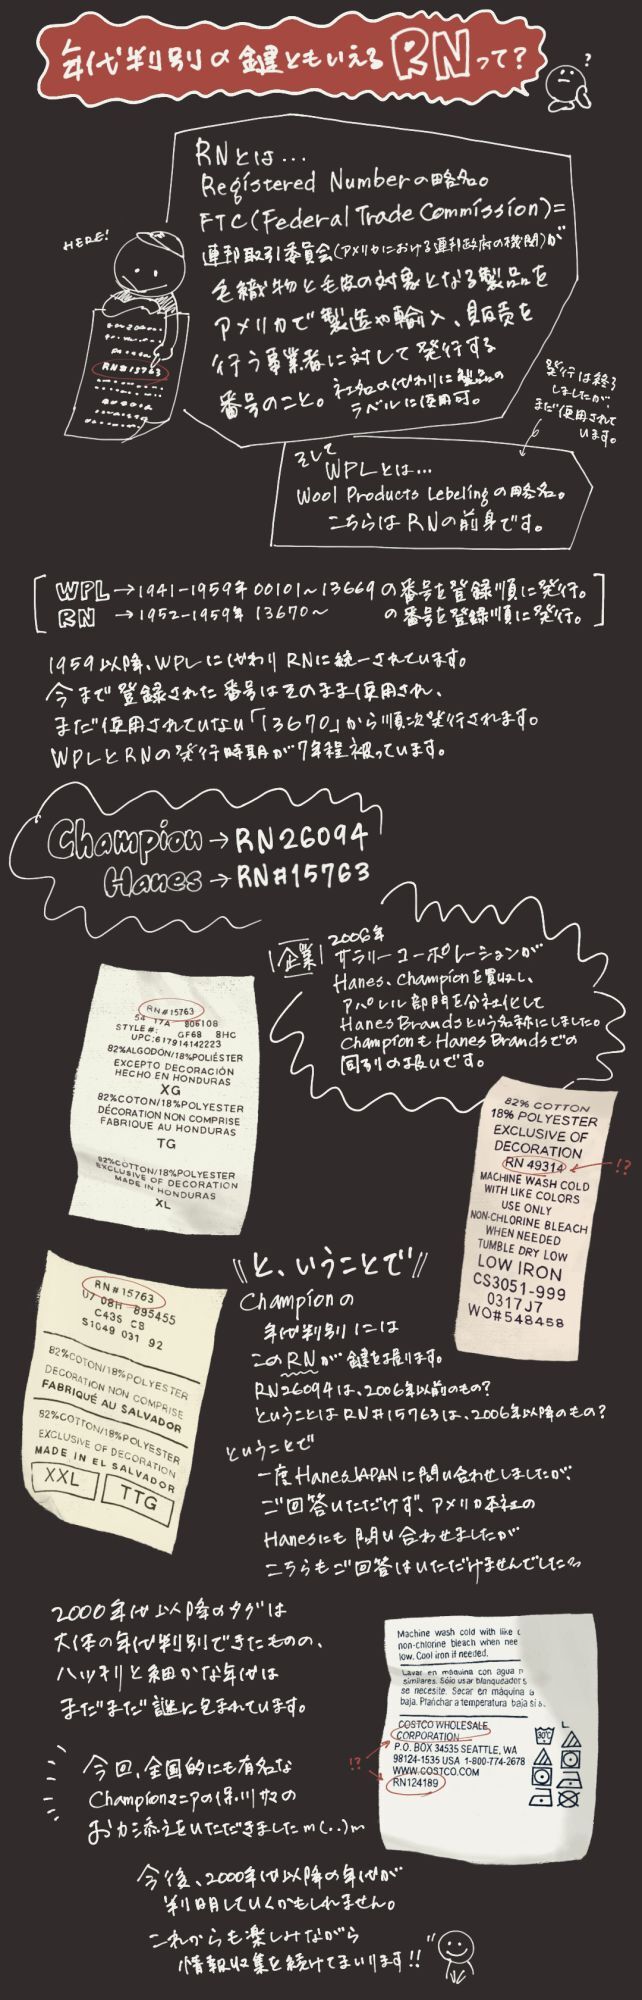 年代判別の鍵ともいえるRNって?
?
HERE!
RN#15763
RNとは…
Registered Numberの略名。
FTC(Federal Trade Commission)=
連邦取引委員会(アメリカにおける連邦政府の機関)が
毛織物と毛皮の対象となる製品を
アメリカで製造や輸入、販売を
行う事業者に対して発行する
番号のこと。社名の代わりに製品の
ラベルに使用可。
発行は終了
しましたが、
まだ使用されて
います。
そして
WPLとは…
Wool Products Lebelingの略名。
こちらはRNの前身です。
WPL→1941-1959年 00101~13669の番号を登録順に発行。
RN→1952-1959年 13670~の番号を登録順に発行。
1959以降、WPLに代わりRNに統一されています。
今まで登録された番号はそのまま使用され、
まだ使用されていない「13670」から順次発行されます。
WPLとRNの発行時期が7年程被っています。
Champion→RN26094
Hanes→RN#15763
企業
2006年
サラリーコーポレーションが
Hanes、Championを買収し、
アパレル部門を分社化して
HanesBrandsという名称にしました。
ChampionもHanesBrandsでの
同列の扱いです。
RN#15763
54 17A 806108
STYLE#: GF68 8HC
UPC:617914142223
82%ALGODON/18%POLIÉSTER
EXCEPTO DECORACIÓN
HECHO EN HONDURAS
XG
82%COTON/18%POLYESTER
DÉCORATION NON COMPRISE
FABRIQUE AU HONDURAS
TG
82%COTTON/18%POLYESTER
EXCLUSIVE OF DECORATION
MADE IN HONDURAS
XL
82% COTTON
18% POLYESTER
EXCLUSIVE OF
DECORATION
RN 49314
!?
MACHINE WASH COLD
WITH LIKE COLORS
USE ONLY
NON-CHLORINE BLEACH
WHEN NEEDED
TUMBLE DRY LOW
LOW IRON
CS3051-999
0317J7
WO#548458
RN#15763
07 08H 895455
C435 CS
S1049 031 92
82%COTON/18%POLYESTER
DECORATION NON COMPRISE
FABRIQUÉ AU SALVADOR
82%COTTON/18%POLYESTER
EXCLUSIVE OF DECORATION
MADE IN EL SALVADOR
XXL TTG
と、いうことで
Championの
年代判別には
このRNが鍵を握ります。
RN26094は、2006年以前のもの?
ということはRN#15763は、2006年以降のもの?
ということで
一度HanesJAPANに問い合わせしましたが、
ご回答いただけず、アメリカ本社の
Hanesにも問い合わせましたが
こちらもご回答はいただけませんでした
2000年代以降のタグは
大体の年代判別できたものの、
ハッキリと細かな年代は
まだまだ謎に包まれています。
Machine wash cold with like c
non-chlorine bleach when nee
low. Cool iron if needed.
Lavar en máquina con agua f
similares. Sólo usar blanqueador s
se necesite. Secar en máquina a
baja. Planchar a temperatura baja si s
COSTCO WHOLESALE
CORPORATION
P.O. BOX 34535 SEATTLE, WA
98124-1535 USA 1-800-774-2678
WWW.COSTCO.COM
RN124189
!?
30°C
今回、全国的にも有名な
Championマニアの保川サマの
お力添えをいただきましたm(..)m
今後、2000年代以降の年代が
判明していくかもしれません。
これからも楽しみながら
情報収集を続けてまいります!!